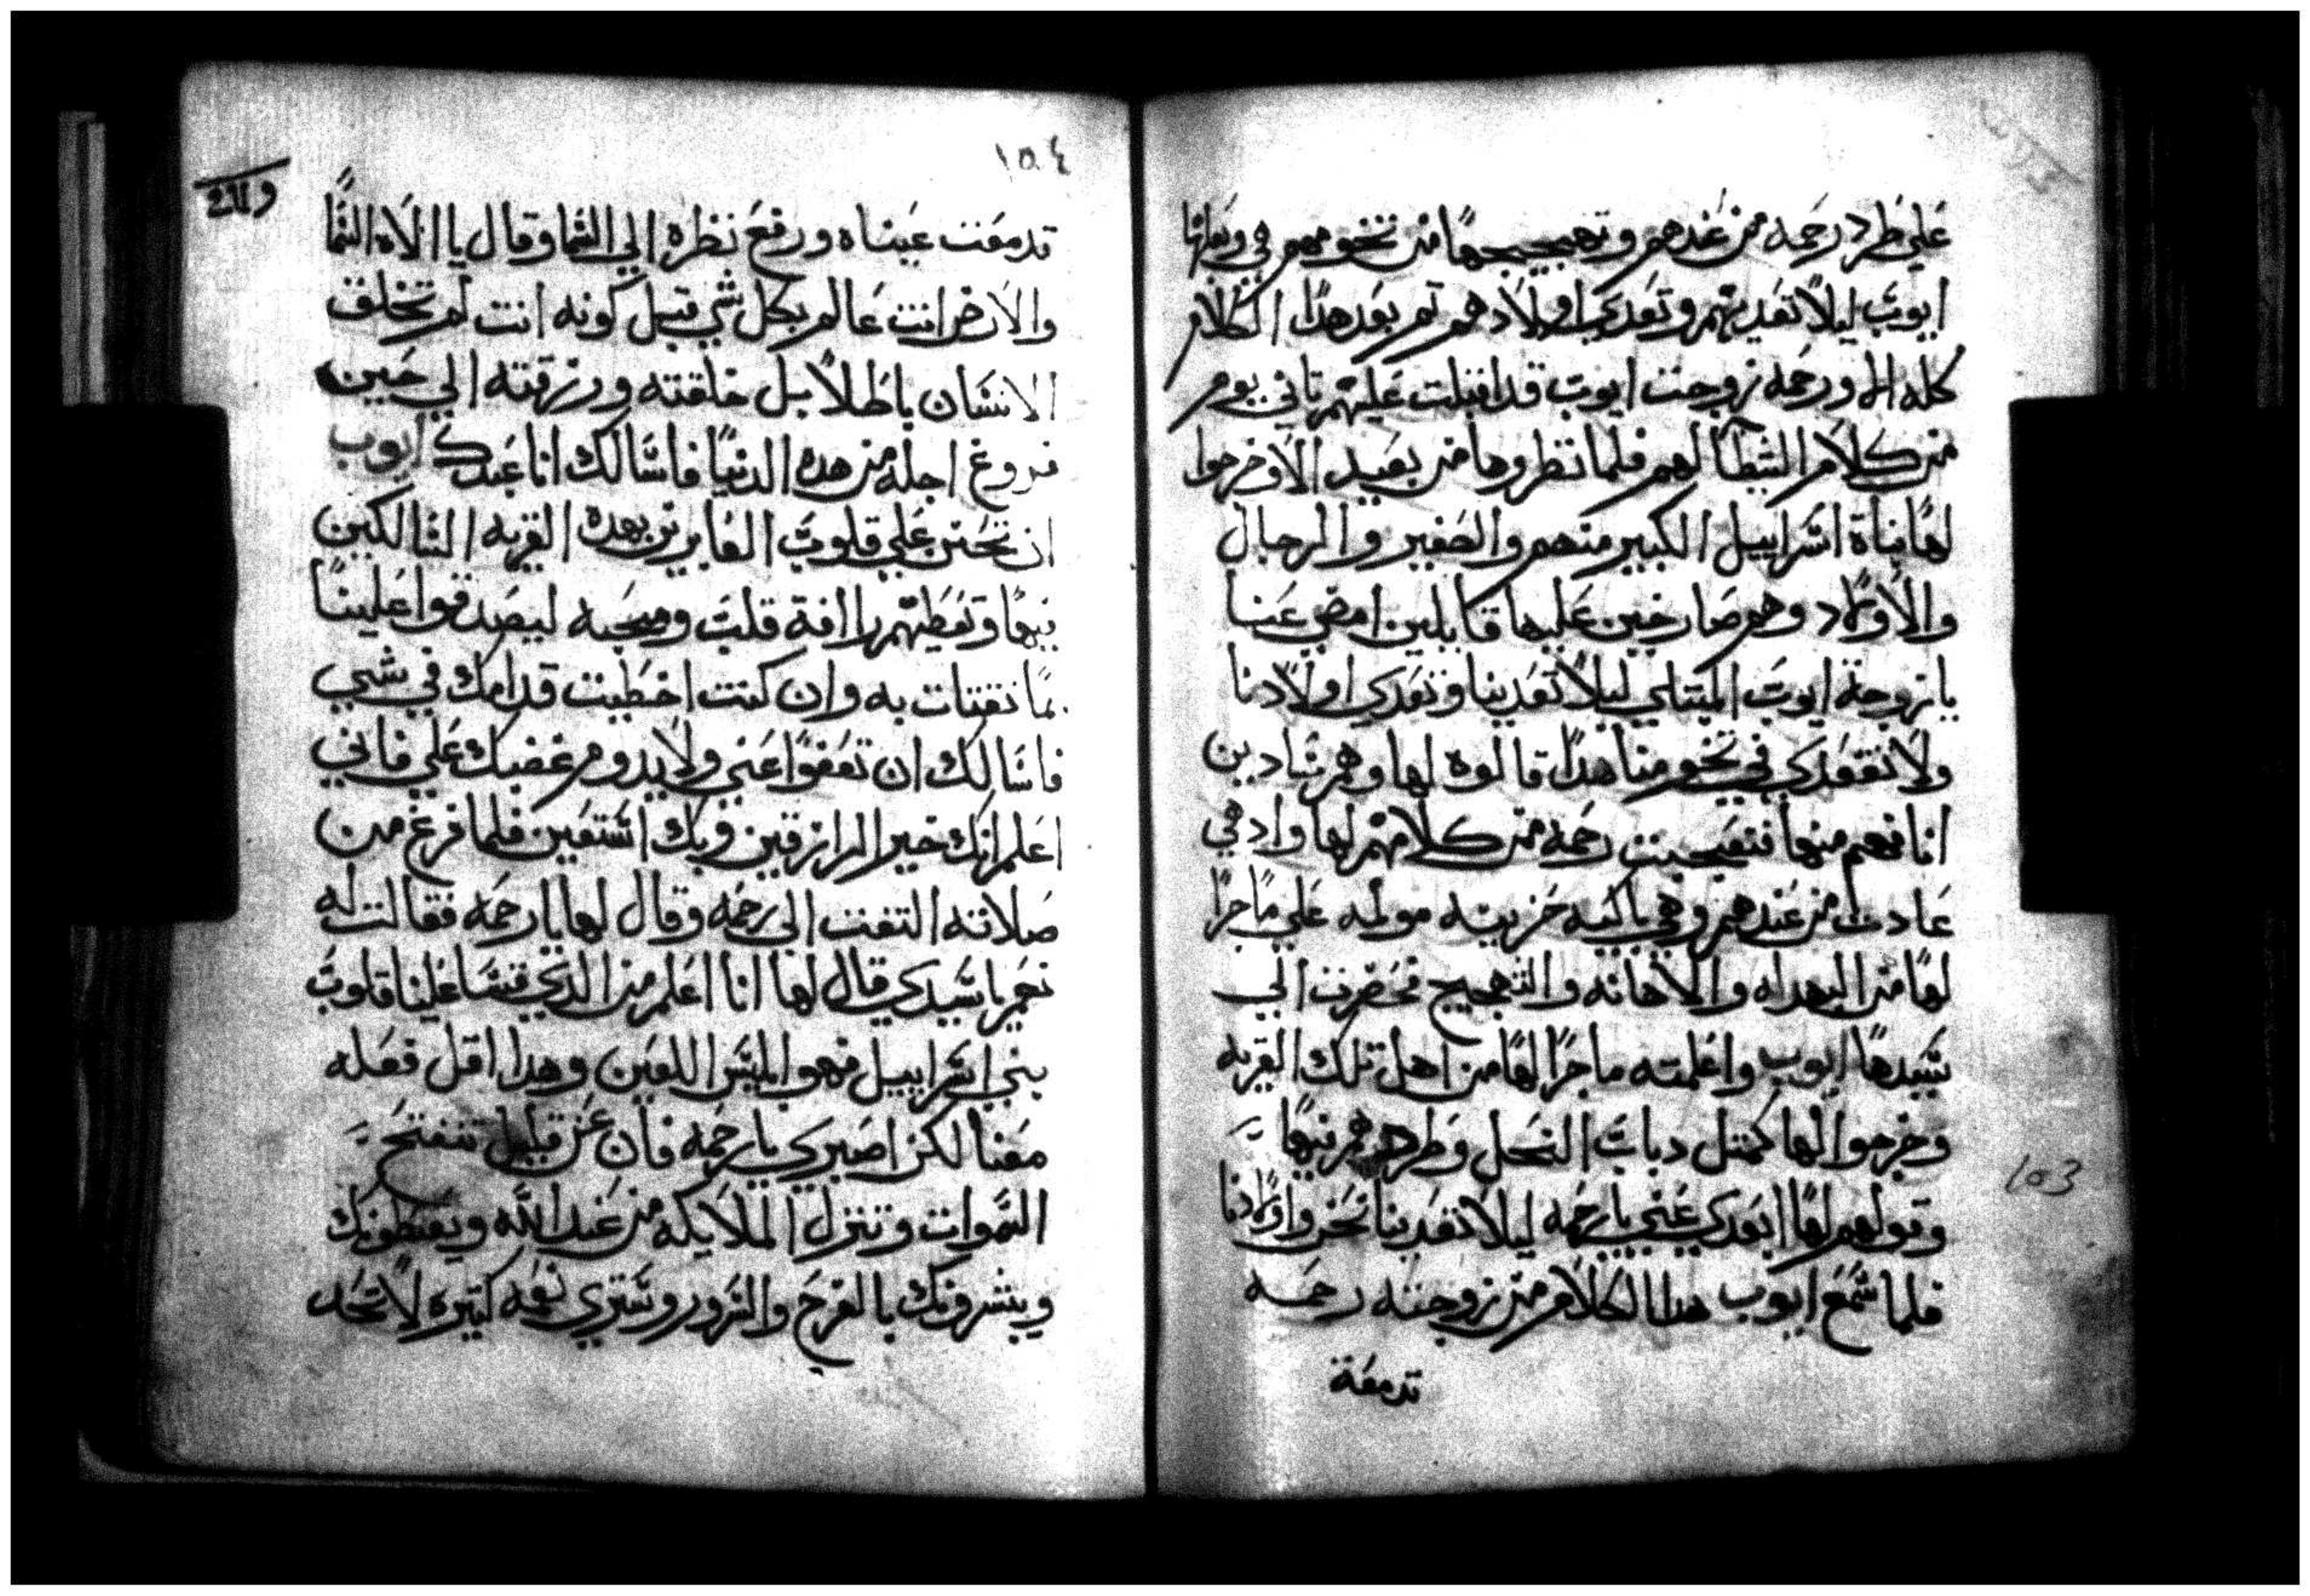 علي طرد رحمه من عندهم وتهجيجها من تخومهم هي وبعلها
ايوب ليلا تعديهم وتعدي اولادهم تم بعد هدا الكلام
كله الا ورحمه زوجت ايوب قد اقبلت عليهم تاني يوم
من كلام الشيطان لهم فلما نظروها من بعيد الا وخرجوا
لها بناة اسراييل الكبير منهم والصغير والرجال
والاولاد وهم صارخين عليها قايلين امضي عننا
يا زوجة ايوب المبتلي ليلا تعدينا وتعدي اولادنا
ولا تقعدي في تخوم منا هدا قالوه لها وهم بنادين
انا فهم منها فتعجبت رحمه من كلامهم لها واد هي
عادت من عندهم وهي باكيه حزينه مولمه علي ما جرا
لها من البهداه والاهانه والتهجيج فحضرت الي
سيدها ايوب واعلمته ما جرا لها من اهل تلك القريه
وخرجوا لها كمتل دبات النحل وطردوهم فيها
وقولهم لها ابعدي عني يا رحمه ليلا تعدينا نحن واولادنا
فلما سمع ايوب هدا الكلام من زوجته رحمه
تدمعة
103
١٥٤
تدمعت عيناه ورفع نظره الي السما وقال يا الاه السما
والارض انت عالم بكل شي قبل كونه انت لم تخلق
الانسان باطلا بل خلقته ورزقته الي حين
فروغ اجله من هده الدنيا فاسالك انا عبدك ايوب
ان تحنن علي قلوب العابرين بهده القريه السالكين
فيها وتعطيهم راافة قلب ومحبه ليصدقوا علينا
بما نقتات به وان كنت اخطيت قدامك في شي
فاسالك ان تعفوا عني ولا يدوم غضبك علي فاني
اعلم انك خير الرازقين وبك استعين فلما فرغ من
صلاته التفت الي رحمه وقال لها يا رحمه فقالت له
نعم يا سيدي قال لها انا اعلم من الدي قسا علينا قلوب
بني اسراييل فهو ابليس اللعين وهدا اقل فعله
معنا لكن اصبري يا رحمه فان عن قليل تنفتح
السموات وتنزل الملايكه من عند الله ويعطونك
ويبشرونك بالفرح والسرور وتتري نعمه كتيره لا تحد